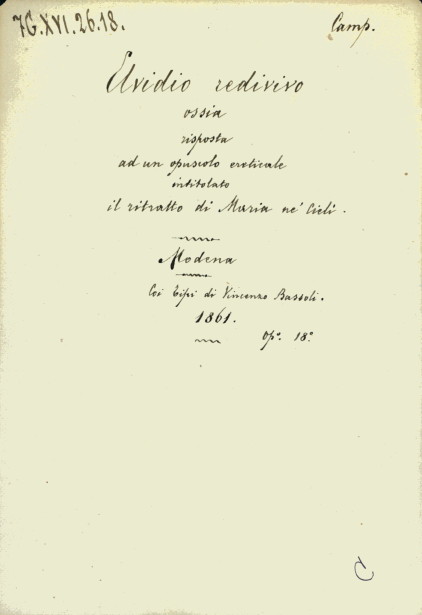 7G.XVI.26.18.
Camp.
Elvidio redivivo
ossia
risposta
ad un opuscolo ereticale
intitolato
il ritratto di Maria ne' Cieli.
Modena
Coi Tipi di Vincenzo Bassoli.
1861.
Opº. 18º
C